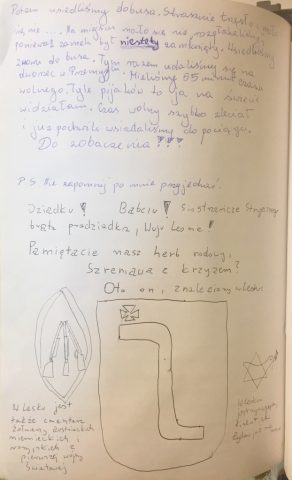 Potem wsiedliśmy do busa. Strasznie trzęsło, mało
się nie .... Na miejscu mało się nie rozpłakałam,
ponieważ zamek był niestety zamknięty. Wsiedliśmy
znowu do busa. Tym razem udaliśmy się na
dworzec w Przemyślu. Mieliśmy 65 minut czasu
wolnego. Tyle pijaków to ja na świecie
widziałam. Czas wolny szybko zleciał
i już wsiedaliśmy do pociągu.
Do zobaczenia!!!
P.S. Nie zapomnij po mnie przyjechać.
Dziadku! Babciu! Siostrzeńcze Stryjeczny
brata pradziadka, Wuju Leonie!
Pamiętacie nasz herb rodowy,
Szreniawa z krzyżem?
Oto on, znaleziony w Lesku
W Lesku jest
także cmentarz
żołnierzy austriackich
niemieckich i
rosyjskich z
pierwszej wojny
światowej
W Lesku